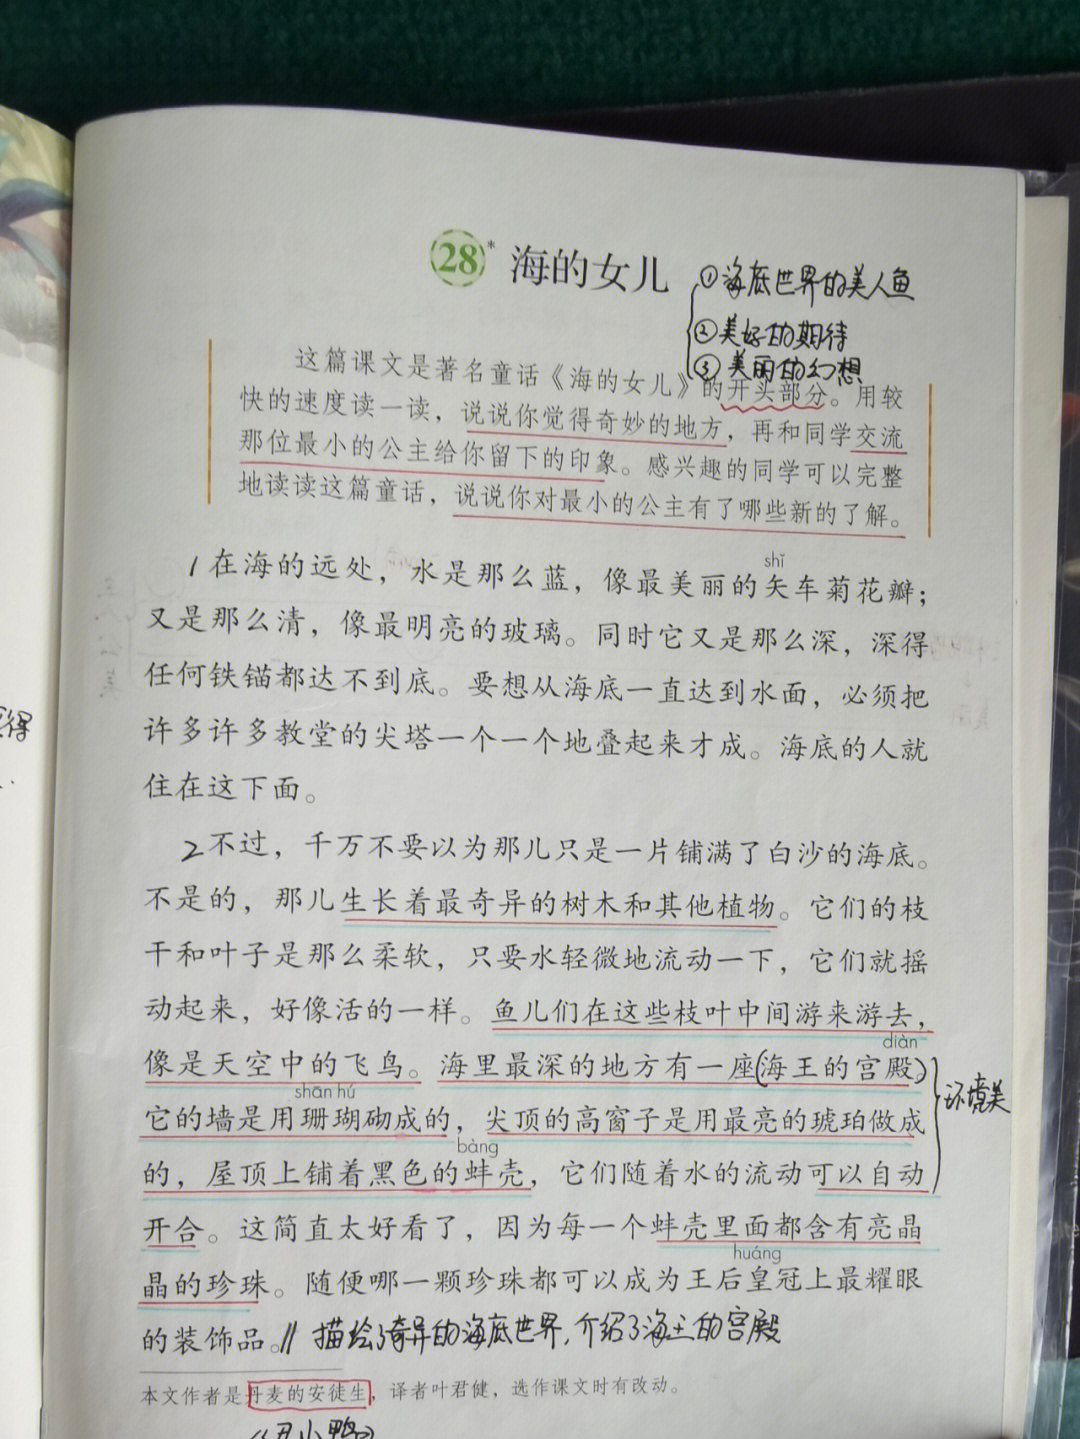 28* 海的女儿
①海底世界的美人鱼
②美好的期待
③美丽的幻想
这篇课文是著名童话《海的女儿》的开头部分。用较
快的速度读一读，说说你觉得奇妙的地方，再和同学交流
那位最小的公主给你留下的印象。感兴趣的同学可以完整
地读读这篇童话，说说你对最小的公主有了哪些新的了解。
shǐ
1在海的远处，水是那么蓝，像最美丽的矢车菊花瓣；
又是那么清，像最明亮的玻璃。同时它又是那么深，深得
任何铁锚都达不到底。要想从海底一直达到水面，必须把
许多许多教堂的尖塔一个一个地叠起来才成。海底的人就
住在这下面。
2不过，千万不要以为那儿只是一片铺满了白沙的海底。
不是的，那儿生长着最奇异的树木和其他植物。它们的枝
干和叶子是那么柔软，只要水轻微地流动一下，它们就摇
动起来，好像活的一样。鱼儿们在这些枝叶中间游来游去，
diàn
像是天空中的飞鸟。海里最深的地方有一座(海王的宫殿)
环境美
shān hú
它的墙是用珊瑚砌成的，尖顶的高窗子是用最亮的琥珀做成
bàng
的，屋顶上铺着黑色的蚌壳，它们随着水的流动可以自动
开合。这简直太好看了，因为每一个蚌壳里面都含有亮晶
huáng
晶的珍珠。随便哪一颗珍珠都可以成为王后皇冠上最耀眼
的装饰品。// 描绘了奇异的海底世界，介绍了海王的宫殿
本文作者是丹麦的安徒生，译者叶君健，选作课文时有改动。
《丑小鸭》
得